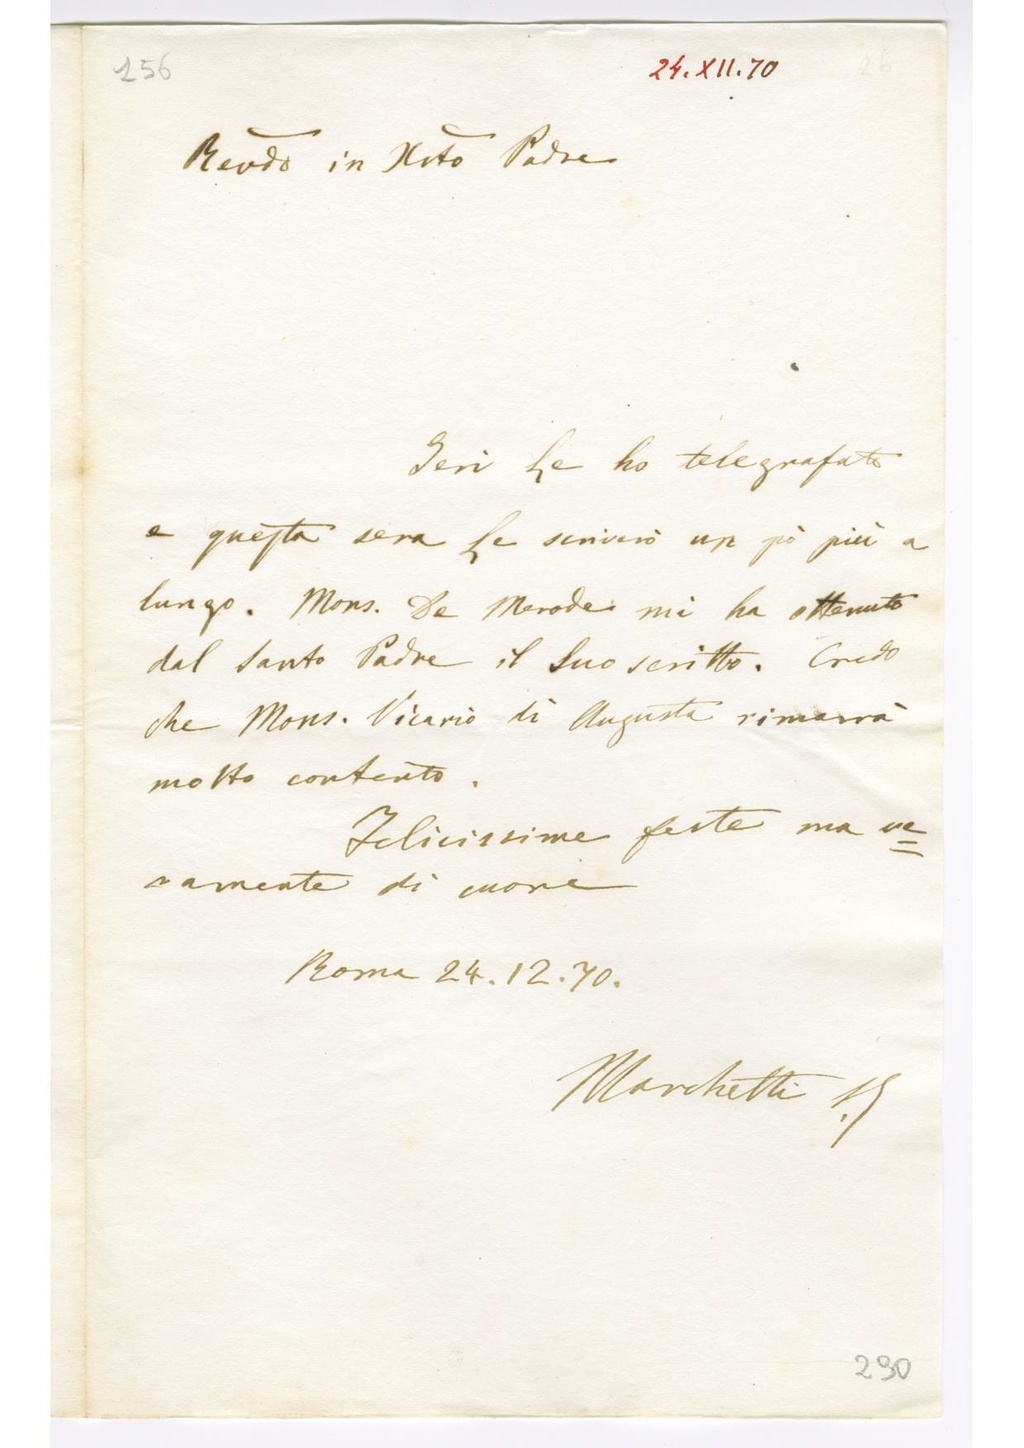 156
24.XII.70
26
Revdo in Xsto Padre
Ieri Le ho telegrafato
e questa sera Le scriverò un pò più a
lungo. Mons. De Merode mi ha ottenuto
dal Santo Padre il Suo scritto. Credo
che Mons. Vicario di Augusta rimarrà
molto contento.
Felicissime feste ma ve
ramente di cuore
Roma 24.12.70.
Marchetti
290